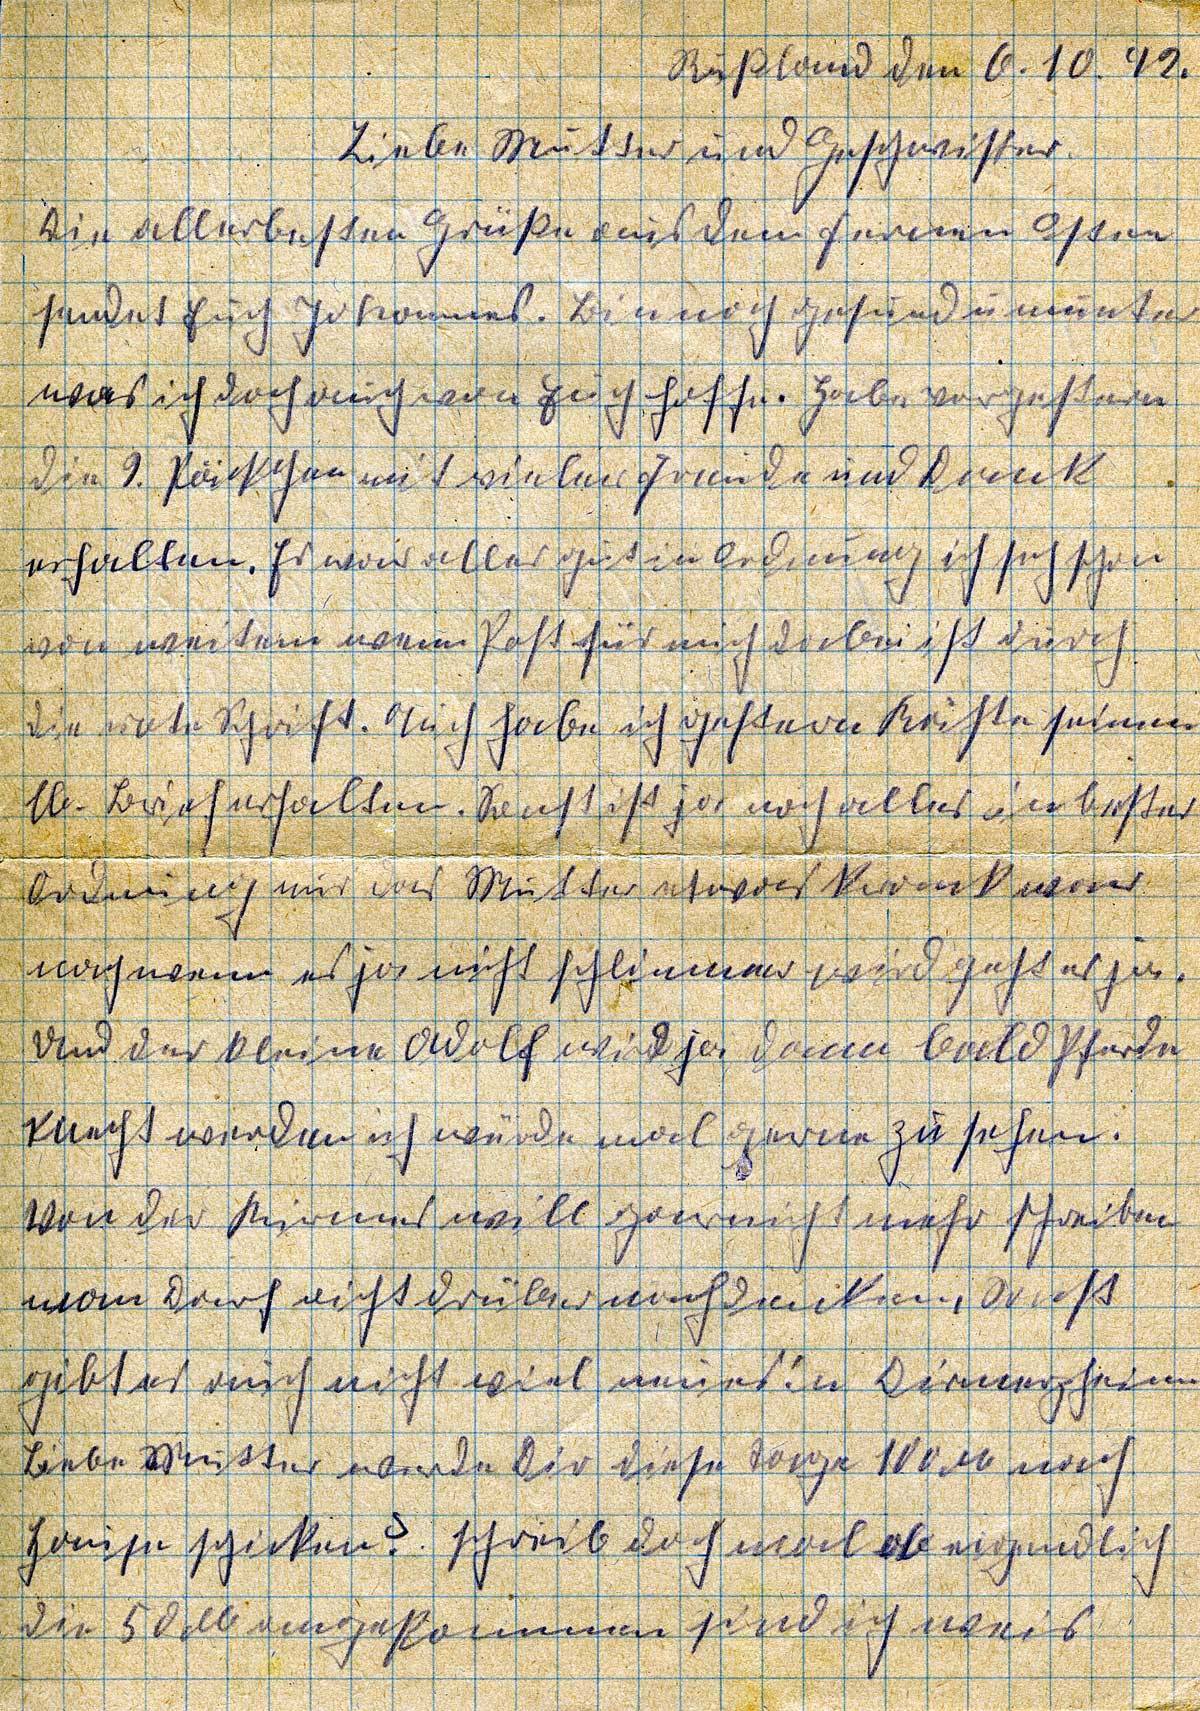 Rußland den 6. 10. 42.
Liebe Mutter und Geschwister.
Die allerbesten Grüße aus dem fernen Osten
sendet Euch Johannes. Bin noch gesund u munter
was ich doch auch von Euch hoffe. Habe vorgestern
die 9. Päckchen mit vieler Freude und Dank
erhalten. Es war alles gut in Ordnung ich seh schon
von weitem wenn Post für mich dabei ist durch
die rote Schrift. Auch habe ich gestern seinen
lb. Brief erhalten. Sonst ist ja noch alles in bester
Ordnung nur das Mutter etwas krank war
nach wenn es ja nicht schlimmer wird geht es ja.
Und der kleine Adolf wird ja dann bald Pferde
knecht werden ich würde mal gerne zu sehen.
Von der Kirmes will garnicht mehr schreiben
man darf nicht drüber nachdenken, Sonst
gibt es auch nicht viel neues in Dirmerzheim
Liebe Mutter werde Dir diese Tage 100 M nach
Hause schicken?. schreib doch mal ob eigendlich
die 50 M angekommen sind ich weis